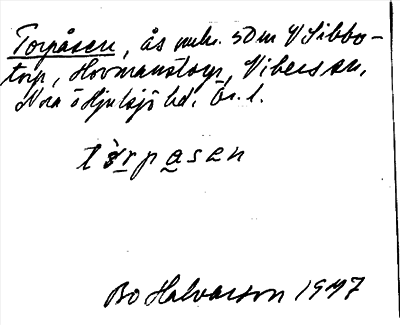 Torpåsen, ås omkr. 50 m V Sibbo-
torp, Hovmanstorp,
Nora o Hjulsjö bd, Ör. l.
tòrpasen
Bo Halvarson 1947